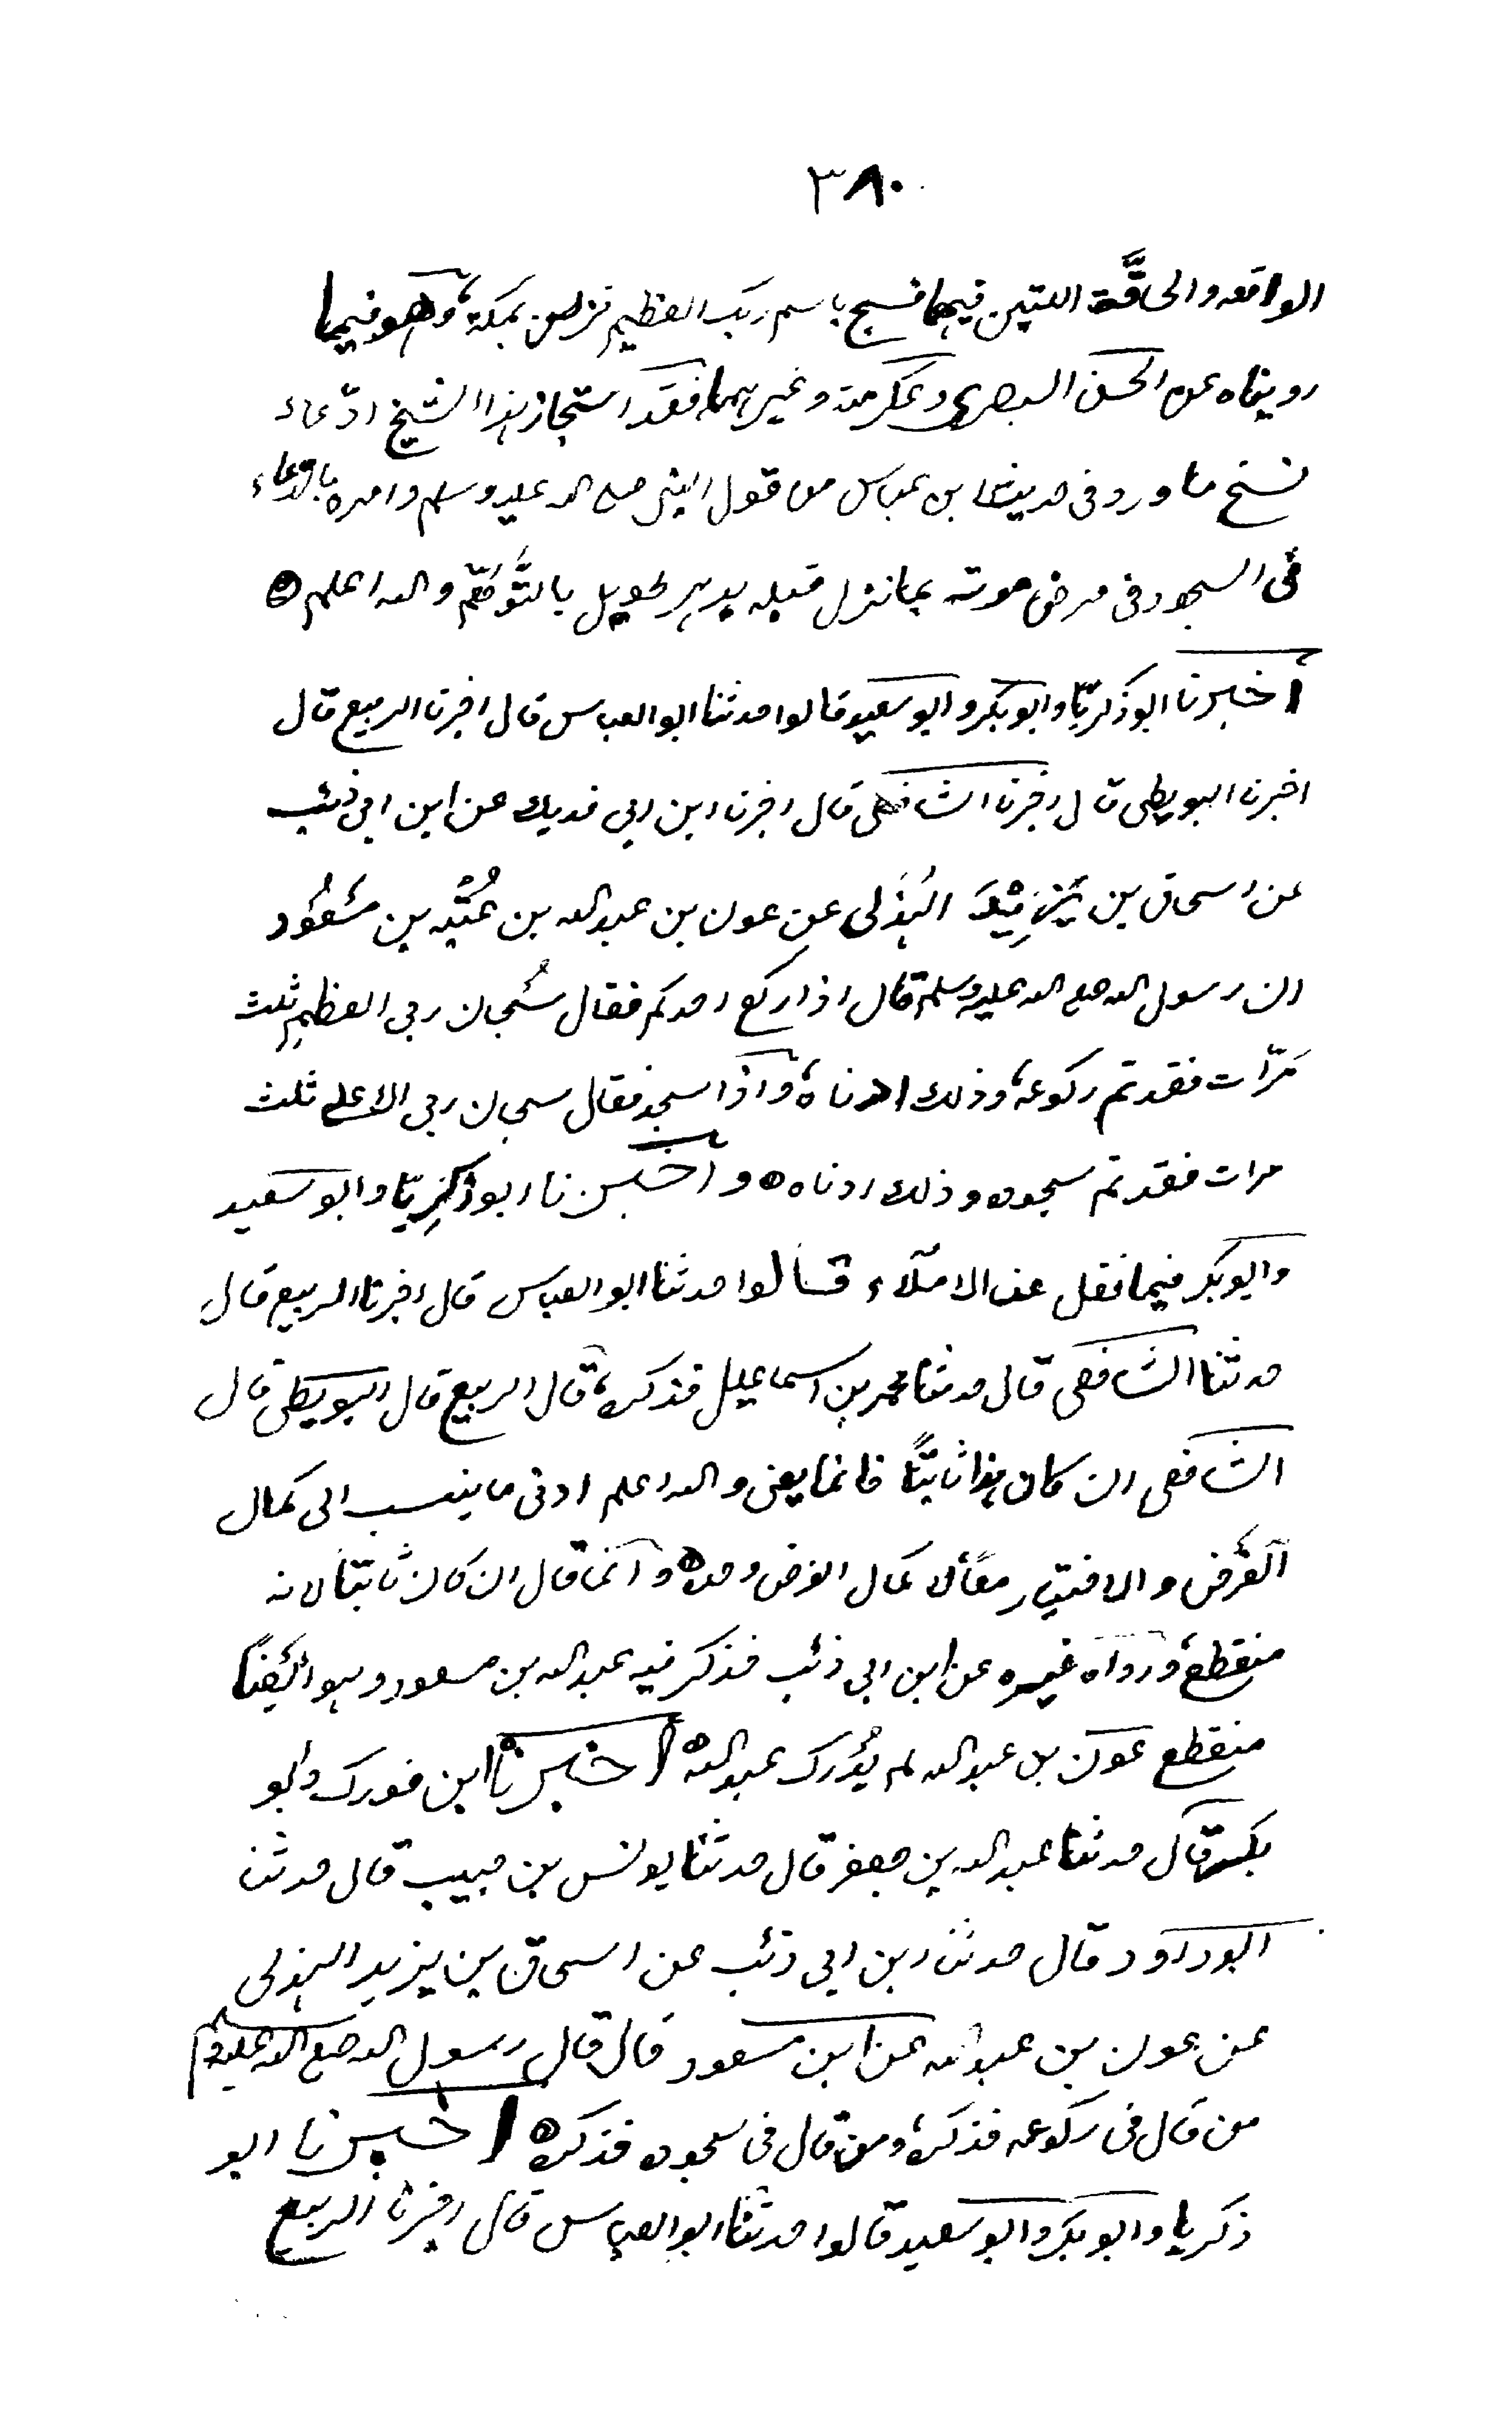 ٣٨٠
الواقعه والحاقَّة اللتين فيهما فسبح باسم ربك العظيم نزلن بمكة وهو فيما
رويناه عن الحسن البصري وعكرمة وغيرهما فقد استجاز هذا الشيخ ادّعاء
نسخ ما ورد في حديث ابن عباس من قول النبي صلى الله عليه وسلم وامره بالدعاء
في السجود في مرض موته بما نزل قبله بدهر طويل بالتَّوهّم والله اعلم
اخبرنا ابو زكريّا وابو بكر وابو سعيد قالوا حدثنا ابو العباس قال اخبرنا الربيع قال
اخبرنا البويطى قال اخبرنا الشافعى قال اخبرنا ابن ابى فديك عن ابن ابى ذئب
عن اسحاق بن يَزِيْدَ الهُذلى عن عون بن عبد الله بن عُتْبه بن مسَعُود
ان رسول الله صلى الله عليه وسلم قال اذا ركع احدكم فقال سُبحان ربى العظيمِ ثلث
مَرّات فقد تم ركوعه وذلك ادناه واذا سجد فقال سبحان ربى الاعلى ثلث
مرات فقد تم سجوده وذلك ادناه و اخبرنا ابو زكرِيّا وابو سعيد
وابو بكر فيما نقل عن الاملآء قالوا حدثنا ابو العباس قال اخبرنا الربيع قال
حدثنا الشافعى قال حدثنا محمد بن اسماعيل فذكره قال الربيع قال البويطى قال
الشافعى ان كان هذا ثابتًا فانما يعنى والله اعلم ادنى ما ينسب الى كمال
الفَرض والاختيار معًا لا كمال الفرض وحده وانما قال ان كان ثابتا لانه
منقطع ورواه غيره عن ابن ابى ذئب فذكر فيه عبد الله بن مسعود وهو ايضًا
منقطع عون بن عبد الله لم يُدرك عبد الله اخبرنا ابن فورك وابو
بكر قال حدثنا عبد الله بن جعفر قال حدثنا يونس بن حبيب قال حدثنا
ابو داود قال حدثنا ابن ابى ذئب عن اسحاق بن يزيد الهذلى
عن عون بن عبد الله عن ابن مسعود قال قال رسول الله صلى الله عليه وسلم
من قال فى ركوعه فذكره ومن قال فى سجوده فذكره اخبرنا ابو
زكريا وابو بكر وابو سعيد قالوا حدثنا ابو العباس قال اخبرنا الربيع